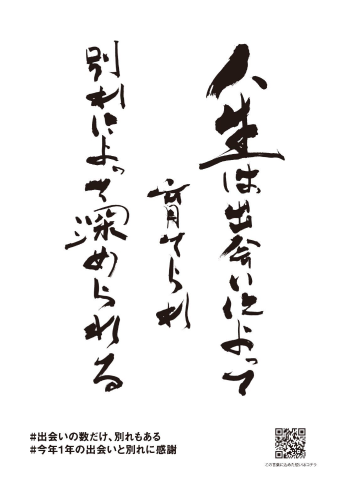 人生は出会いによって
育てられ
別れによって深められる
#出会いの数だけ、別れもある
#今年1年の出会いと別れに感謝
この言葉に込めた想いはコチラ